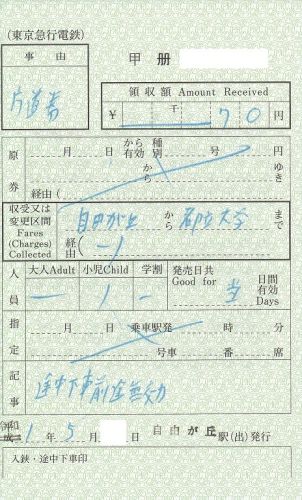 (東京急行電鉄)
事由
甲 册
片道券
領収額 Amount Received
¥ 千 70 円
原券
月 日 から有効 種別 号 円
から ゆき
経由 (
収受又は
変更区間
Fares
(Charges)
Collected
自由が丘 から 都立大学 まで
経由 (—)
人員
大人Adult 小児Child 学割 発売日共 Good for 日間有効 Days
— 1 — 当
指定
月 日 乗車駅発 時 分
号車 番 席
記事
途中下車前途無効
令和 1 年 5 月 日 自由が丘 駅(出)発行
入鋏・途中下車印